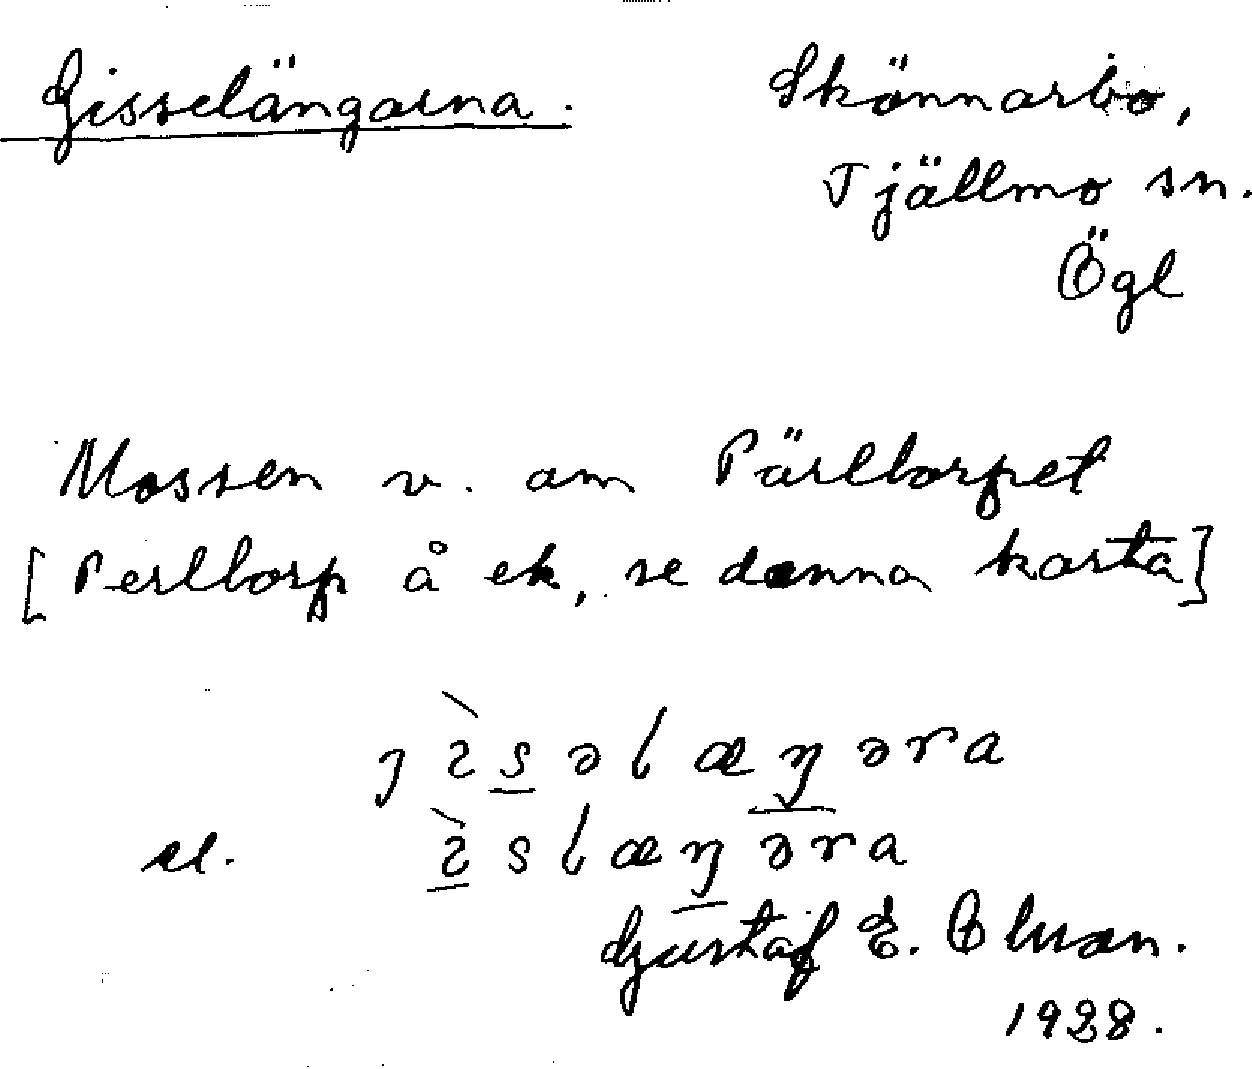 Gisselängarna. Skönnarbo,
Tjällmo sn.
Ögl
Mossen v. om Pärltorpet
[Perltorp å ek, se denna karta]
ɟìsəlæŋəra
el. ìslæŋəra
Gustaf E.
1928.